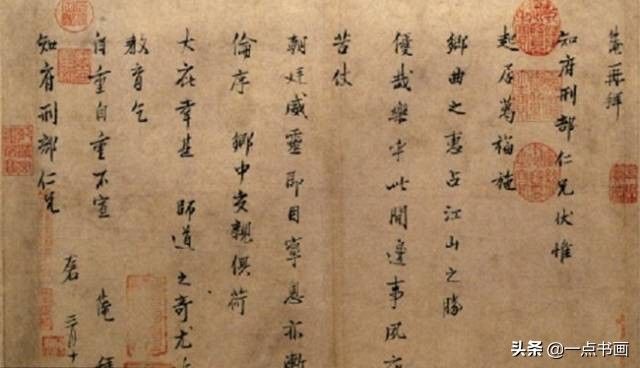 淹再拜
知府刑部仁兄伏惟
起居萬福施
鄉曲之惠占江山之勝
優哉樂乎此間邊事夙
苦仗
朝廷威靈即目寧息亦漸
倫序鄉中交親俱荷
大庇幸甚師道之奇尤
教育乞
自重自重不宣淹拜
知府刑部仁兄
三月十
头条 @一点书画